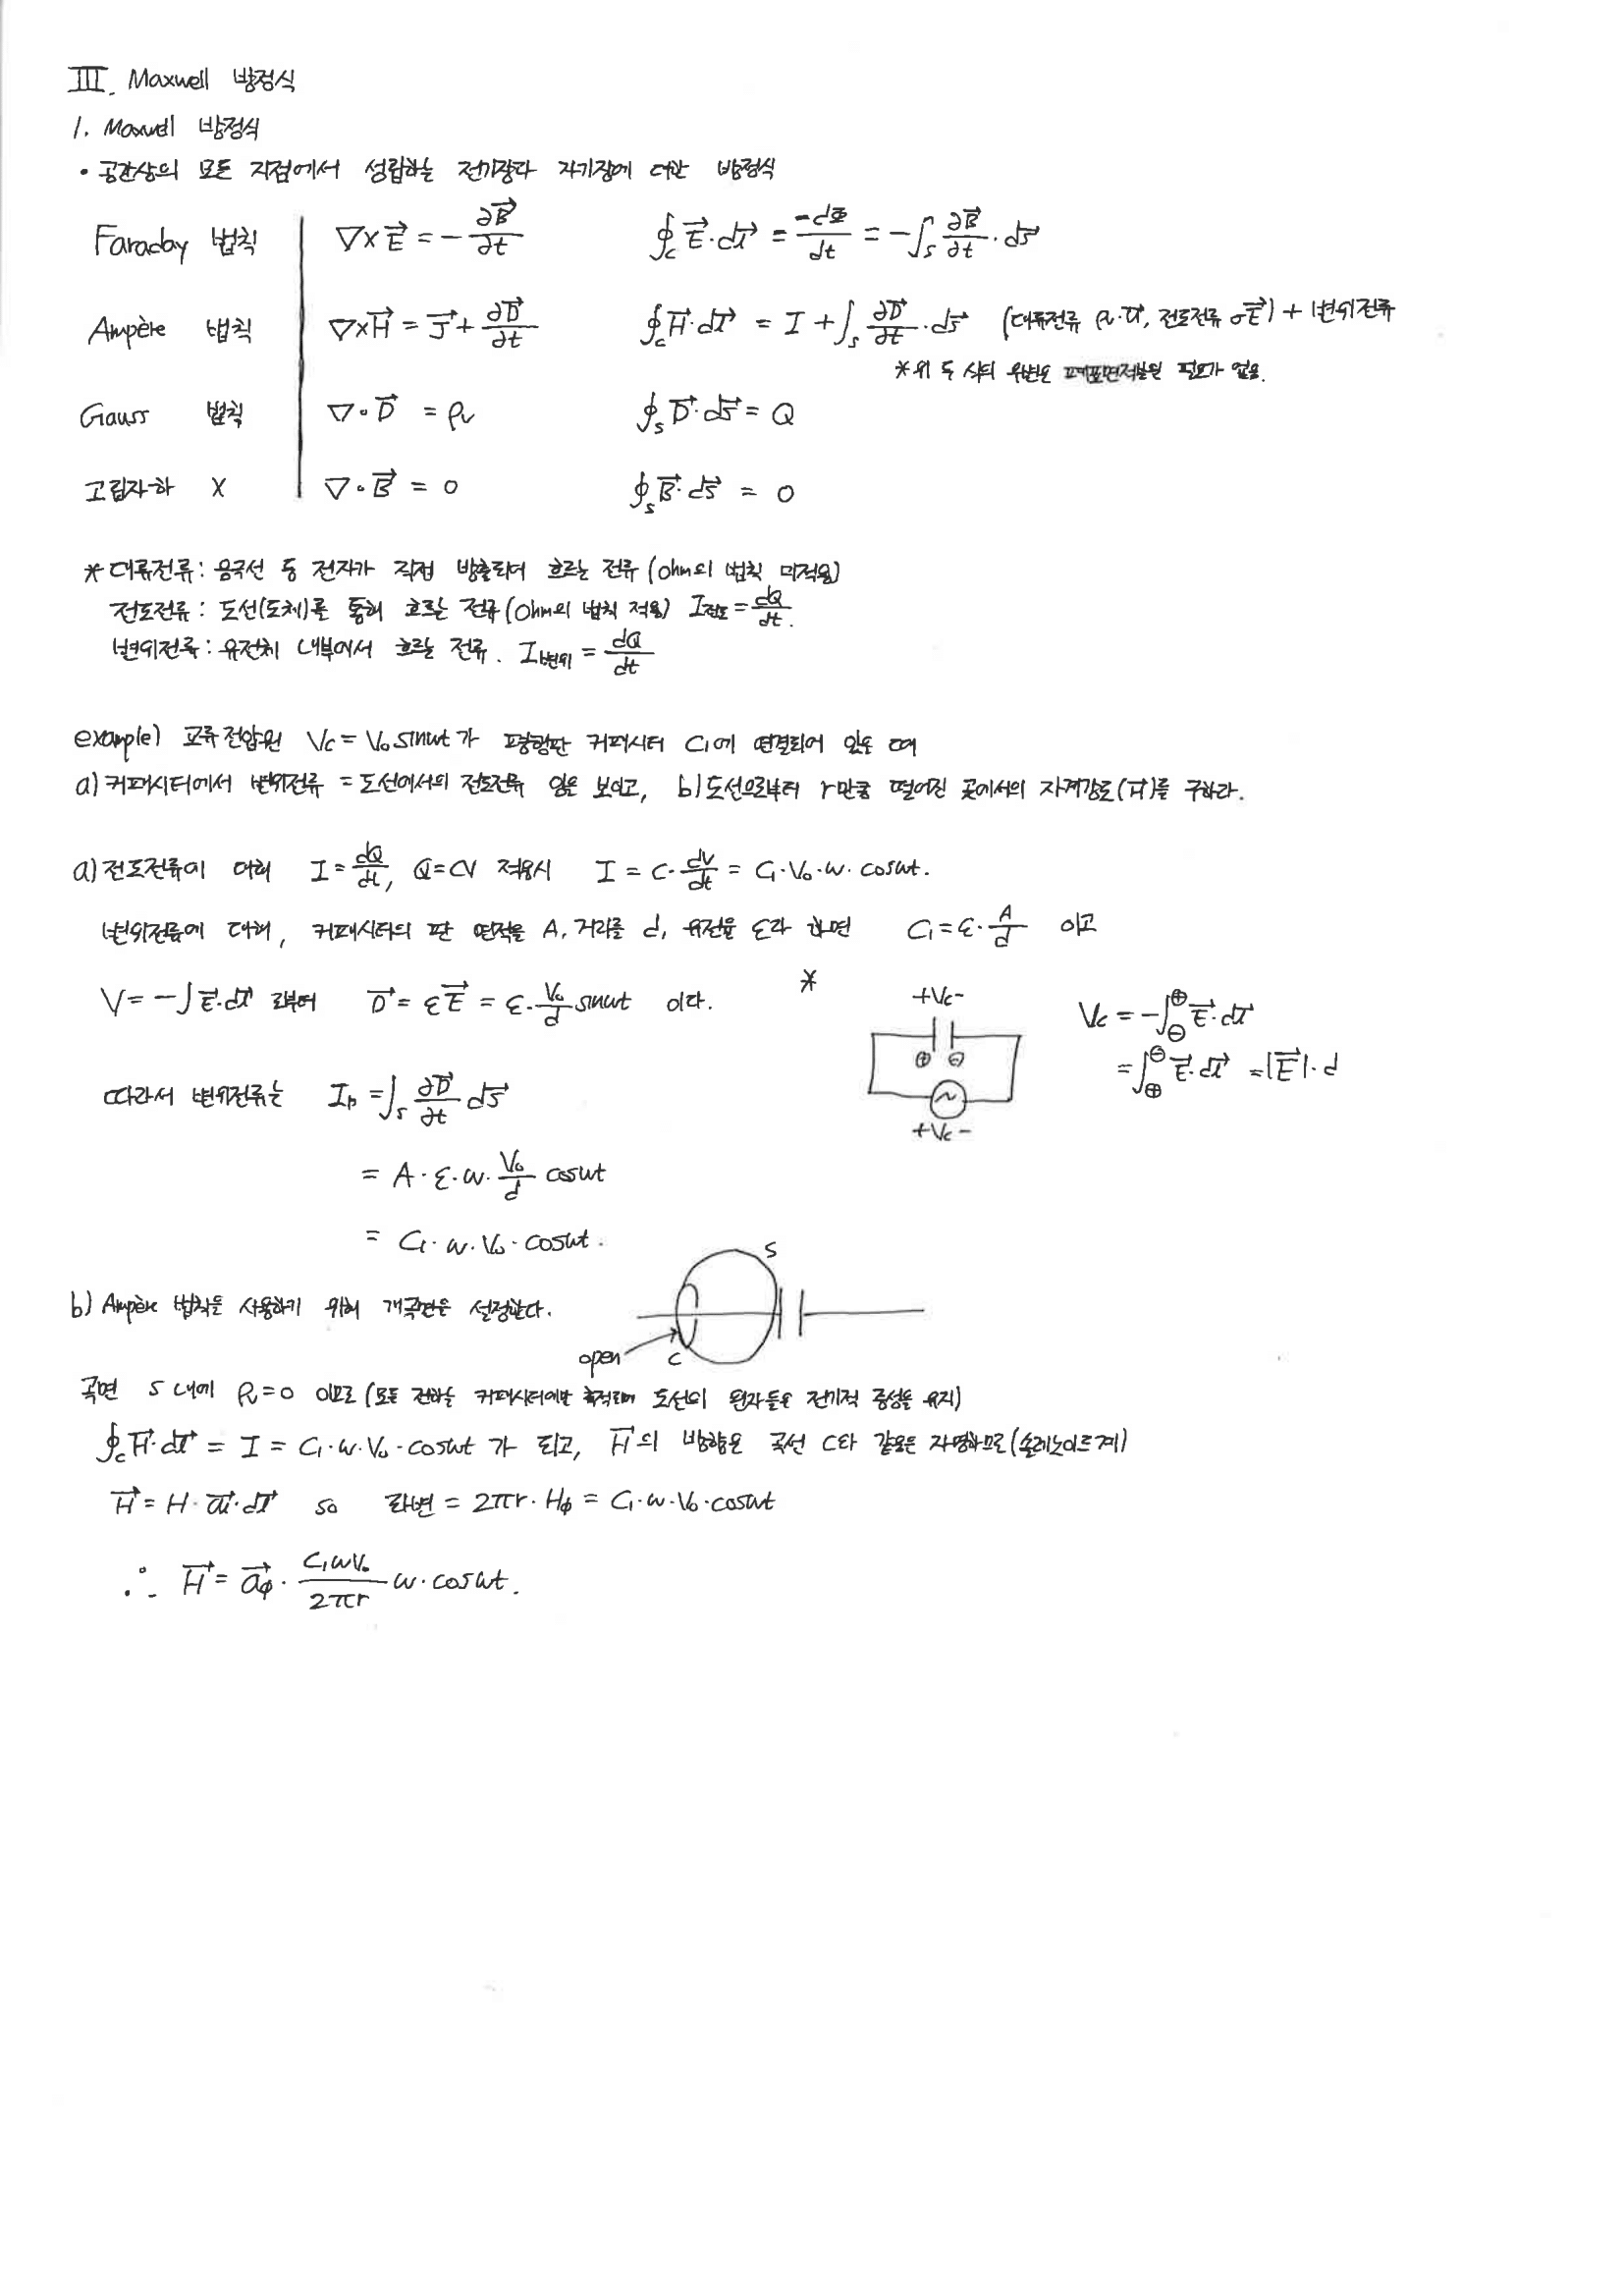 III. Maxwell 방정식
1. Maxwell 방정식
• 공간상의 모든 지점에서 성립하는 전기장과 자기장에 대한 방정식
Faraday 법칙 ∇×E⃗ = -∂B⃗/∂t ∮_c E⃗·dl⃗ = -dΦ/dt = -∫_s ∂B⃗/∂t·ds⃗
Ampère 법칙 ∇×H⃗ = J⃗ + ∂D⃗/∂t ∮_c H⃗·dl⃗ = I + ∫_s ∂D⃗/∂t·ds⃗ (대류전류 ρv·u⃗, 전도전류 σE⃗) + 변위전류
*위 두 식의 우변은 폐표면적분일 필요가 없음.
Gauss 법칙 ∇·D⃗ = ρv ∮_s D⃗·ds⃗ = Q
고립자하 X ∇·B⃗ = 0 ∮_s B⃗·ds⃗ = 0
* 대류전류: 음극선 등 전자가 직접 방출되어 흐르는 전류 (ohm의 법칙 미적용)
전도전류: 도선(도체)를 통해 흐르는 전류 (Ohm의 법칙 적용) I전도 = dQ/dt.
변위전류: 유전체 내부에서 흐르는 전류. I변위 = dQ/dt
example) 교류전압원 Vc = V₀ sinωt가 평행판 커패시터 C₁에 연결되어 있을 때
a) 커패시터에서 변위전류 = 도선에서의 전도전류 임을 보이고, b) 도선으로부터 r만큼 떨어진 곳에서의 자계강도(H⃗)를 구하라.
a) 전도전류에 대해 I = dQ/dt, Q=CV 적용시 I = C·dV/dt = C₁·V₀·ω·cosωt.
변위전류에 대해, 커패시터의 판 면적을 A, 거리를 d, 유전율 ε라 하면 C₁ = ε·A/d 이고
V = -∫E⃗·dl⃗ 로부터 D⃗ = εE⃗ = ε·V₀/d sinωt 이다.
*
+Vc-
⊕ ⊖
~
+Vc-
Vc = -∫_⊖^⊕ E⃗·dl⃗
= ∫_⊕^⊖ E⃗·dl⃗ = |E⃗|·d
따라서 변위전류는 I_D = ∫_s ∂D⃗/∂t ds⃗
= A·ε·ω·V₀/d cosωt
= C₁·ω·V₀·cosωt.
b) Ampère 법칙을 사용하기 위해 개곡면을 설정한다.
S
open C
곡면 S 내에 ρv=0 이므로 (모든 전하는 커패시터에만 축적되며 도선의 원자들은 전기적 중성을 유지)
∮_c H⃗·dl⃗ = I = C₁·ω·V₀·cosωt 가 되고, H⃗의 방향은 곡선 C와 같음은 자명하므로 (솔레노이드계)
H⃗ = H·a⃗l·dl⃗ so 좌변 = 2πr·Hφ = C₁·ω·V₀·cosωt
∴ H⃗ = a⃗φ·C₁ωV₀/2πr ω·cosωt.